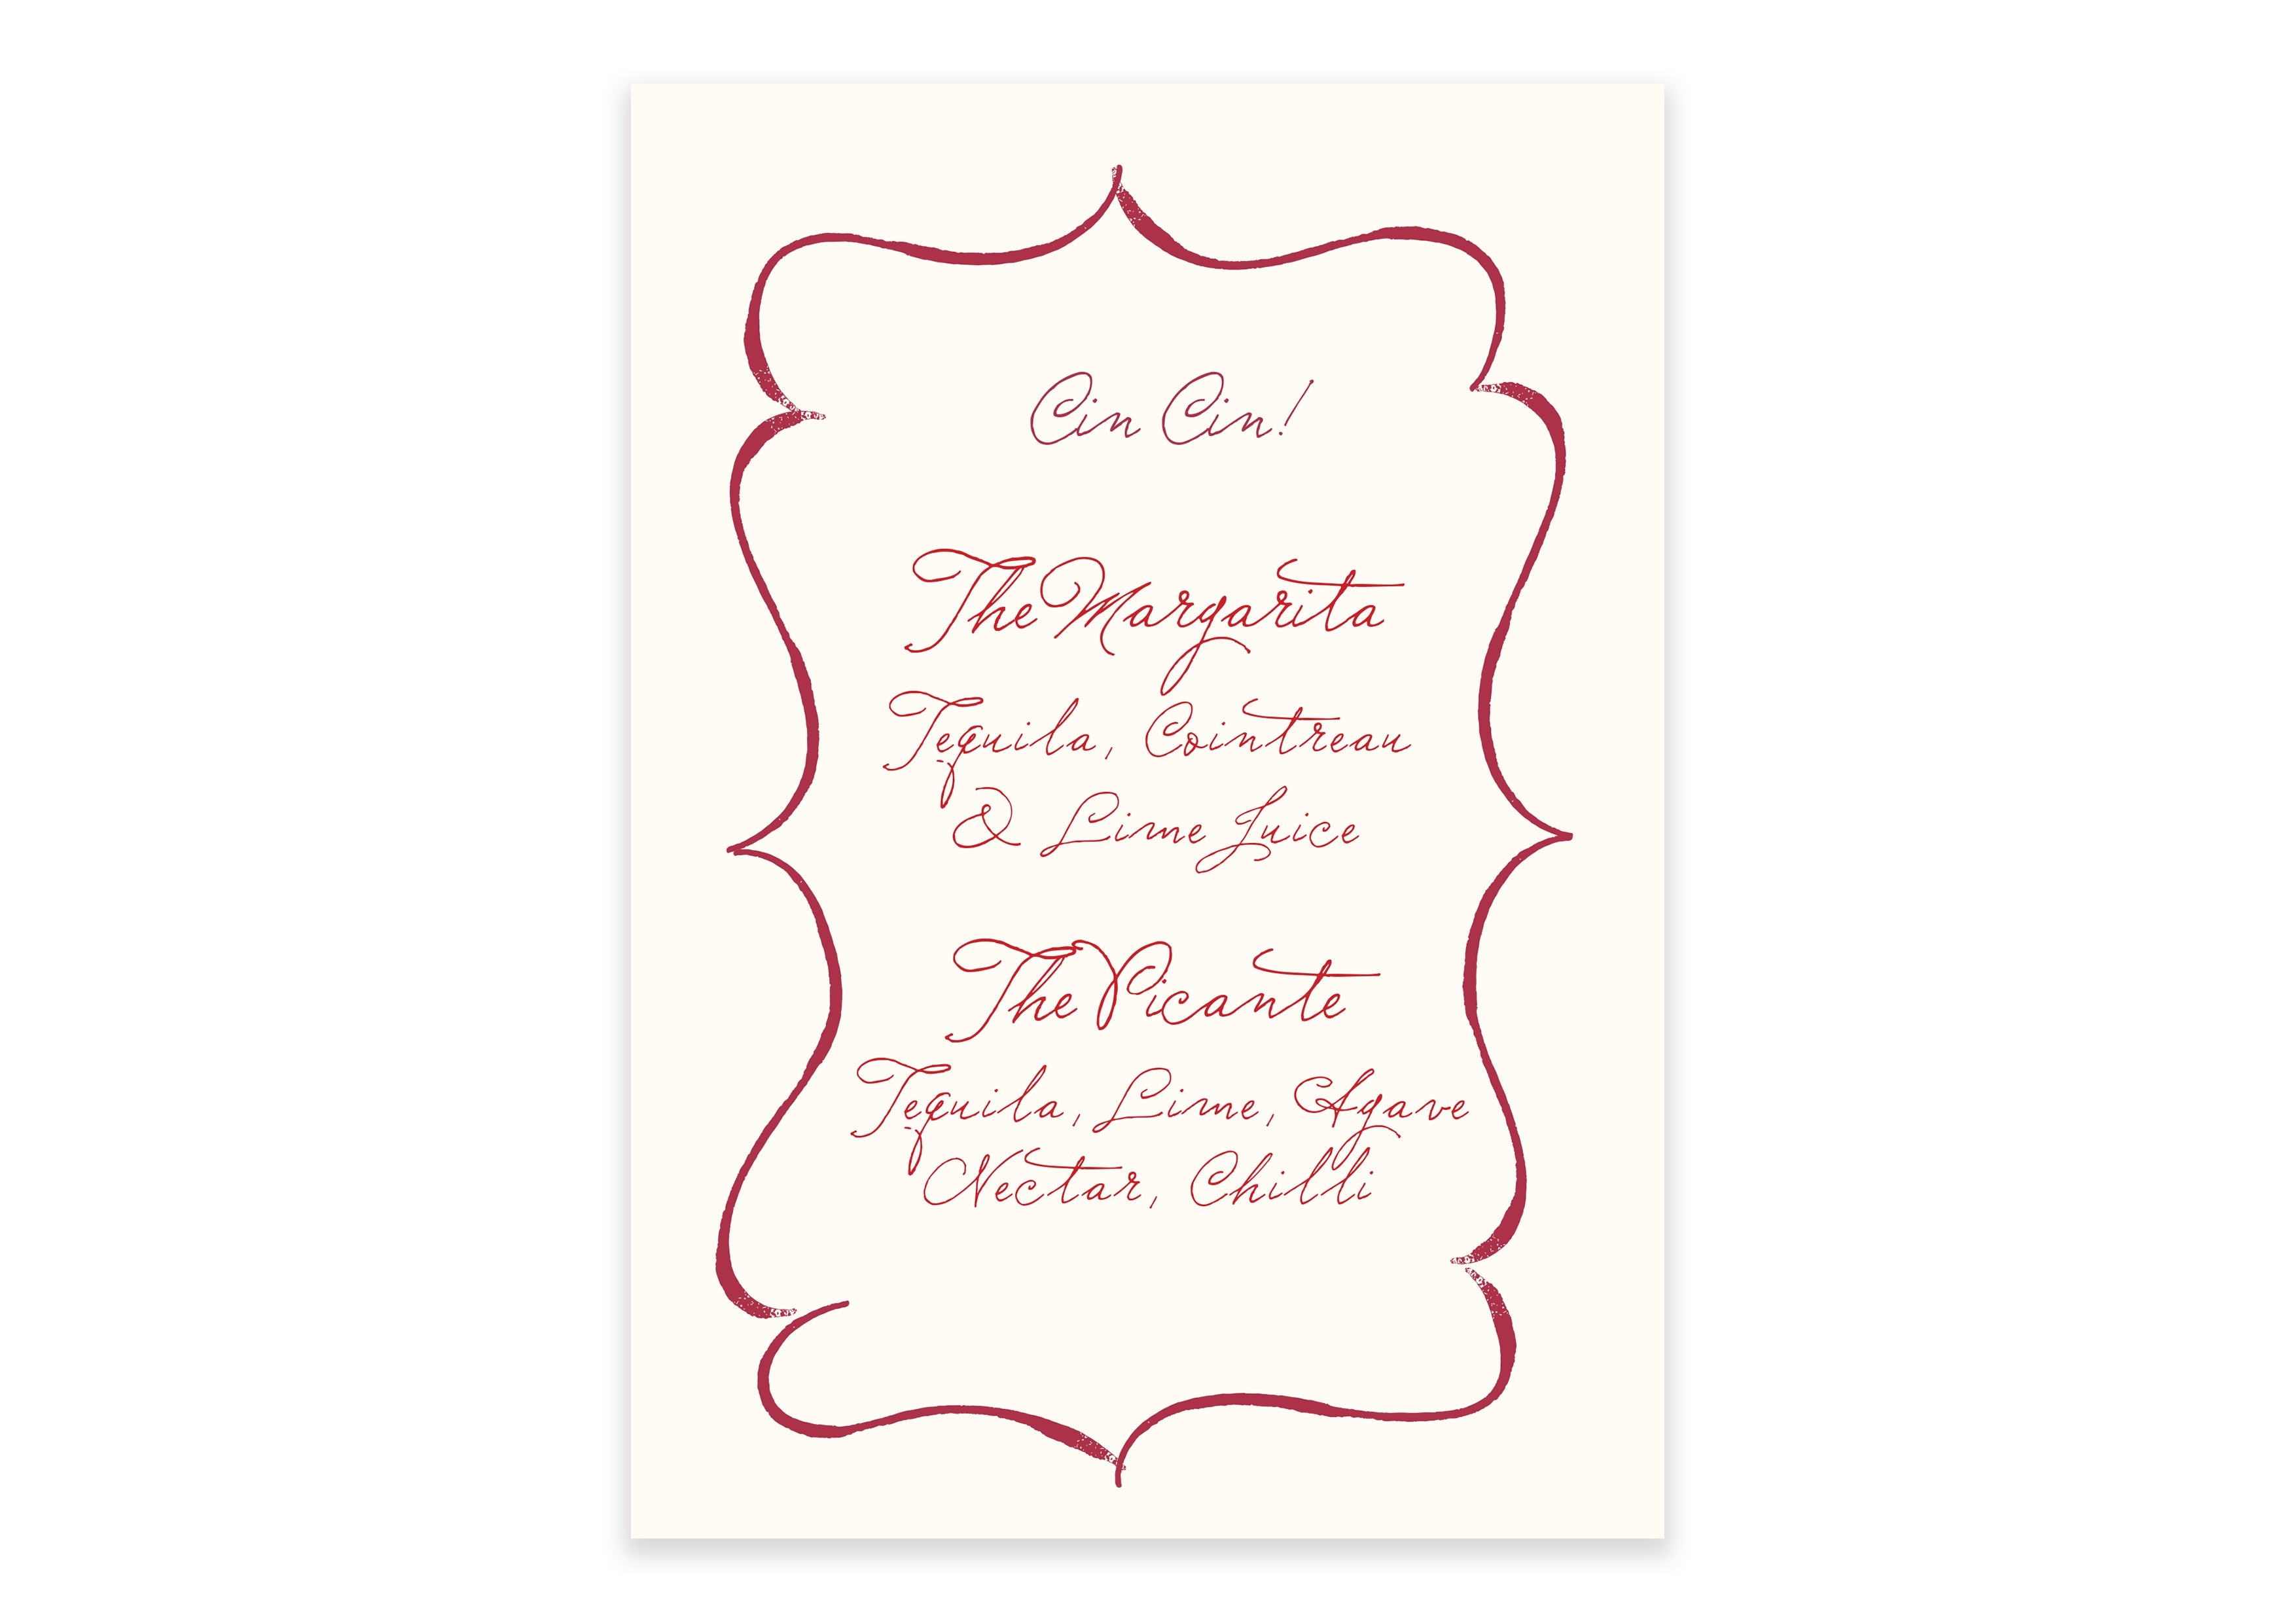 Cin Cin!
The Margarita
Tequila, Cointreau
& Lime Juice
The Picante
Tequila, Lime, Agave
Nectar, Chilli